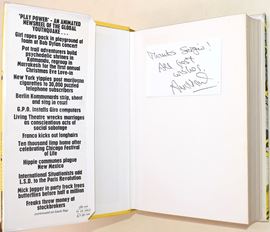 'PLAY POWER' - AN ANIMATED
NEWSREEL OF THE GLOBAL
YOUTHQUAKE . . .
Girl ropes pack in playground of
foam at Bob Dylan concert
Pot trail adventurers build
psychedelic shrines in
Katmandu, regroup in
Marrakesh for the first annual
Christmas Eve Love-in
New York Yippies post marijuana
cigarettes to 30,000 puzzled
telephone subscribers
Berlin Kommunards strip, shent
and sing in court
G.P.O. installs Giro computers
Living Theatre wrecks marriages
as conscientious acts of
social sabotage
Franco kicks out longhairs
Ten thousand limp home after
celebrating Chicago Festival
of Life
Hippie communes plague
New Mexico
International Situationists add
L.S.D. to the Paris Revolution
Mick Jagger in party frock frees
butterflies before half a million
Freaks throw money at
stockbrokers
continued on back flap
Thanks
And best
wishes